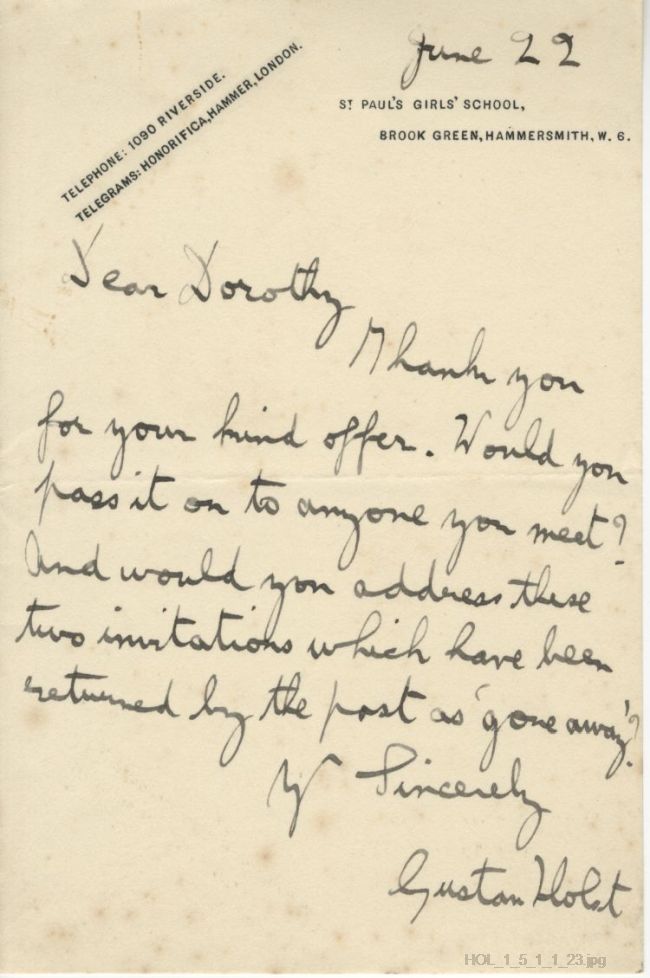 June 22
TELEPHONE: 1090 RIVERSIDE.
TELEGRAMS: HONORIFICA, HAMMER, LONDON.
ST PAUL'S GIRLS' SCHOOL,
BROOK GREEN, HAMMERSMITH, W. 6.
Dear Dorothy
Thank you
for your kind offer. Would you
pass it on to anyone you meet?
And would you address these
two invitations which have been
returned by the post as 'gone away'?
Yr Sincerely
Gustav Holst
HOL_1_5_1_1_23.jpg